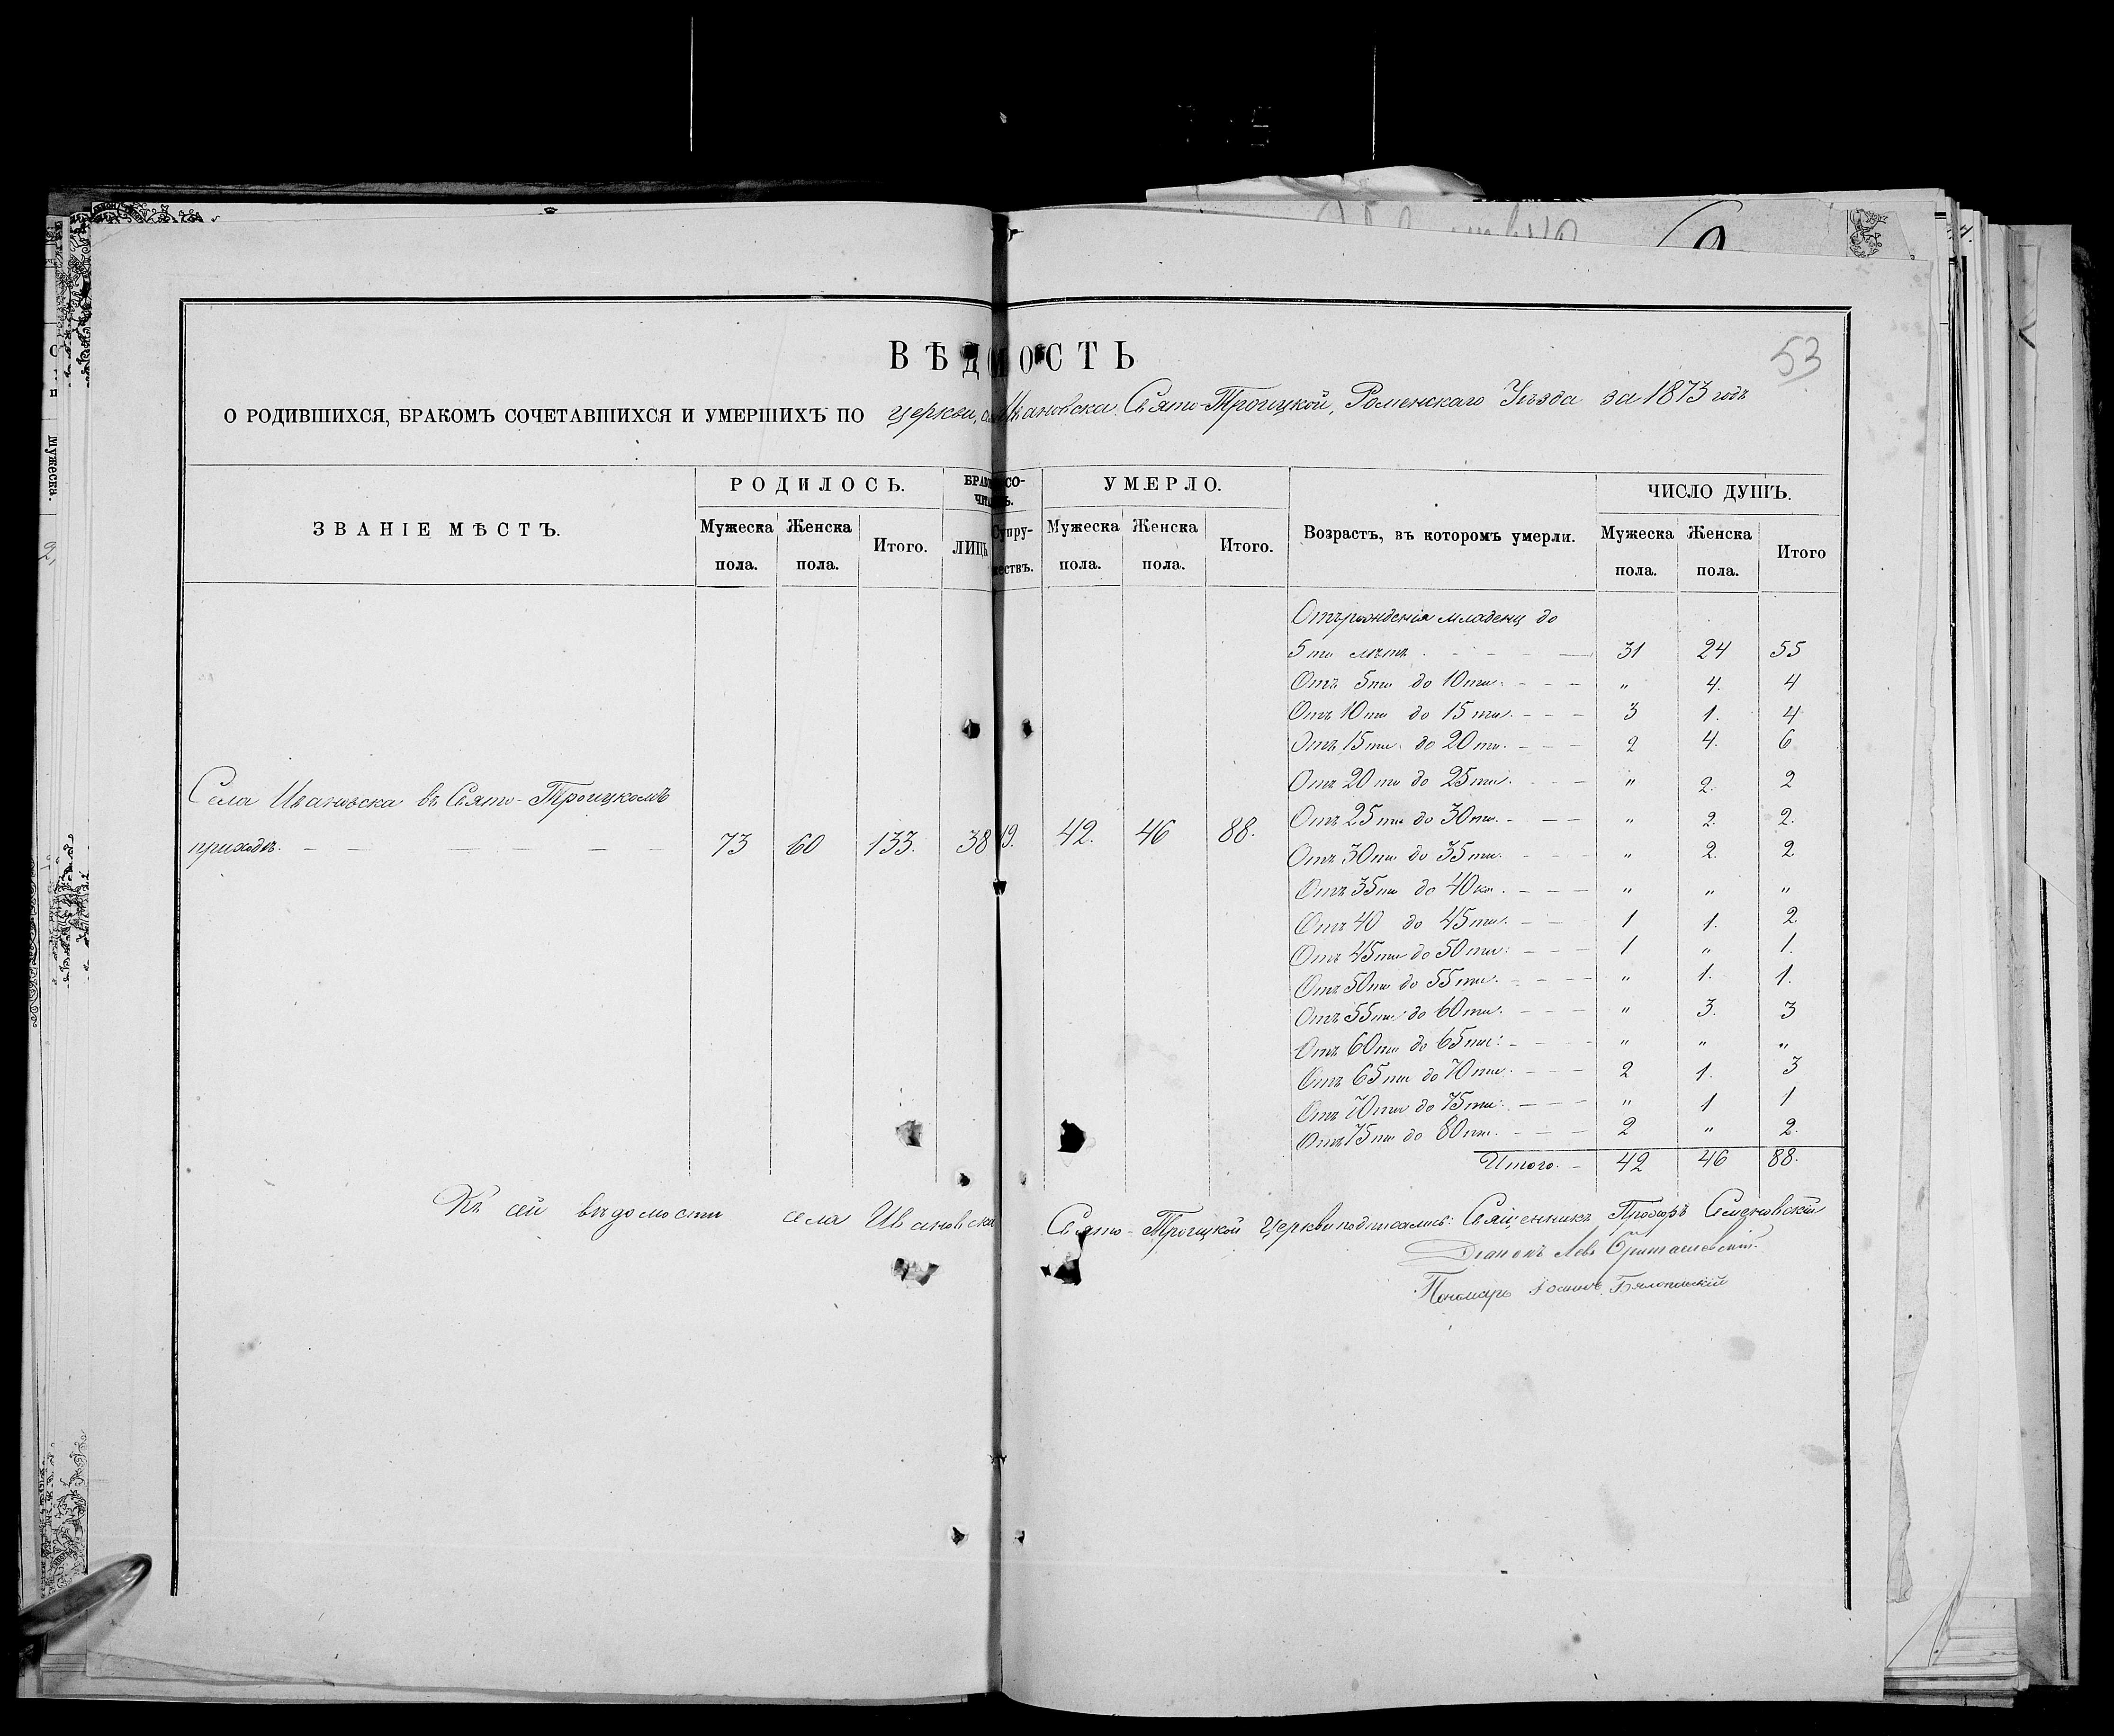 53
ВѢДОМОСТЬ
О РОДИВШИХСЯ, БРАКОМЪ СОЧЕТАВШИХСЯ И УМЕРШИХЪ ПО церкви, Ивановска Свято-Троицкой, Роменскаго Уѣзда за 1873 годъ
ЗВАНІЕ МѢСТЪ.
РОДИЛОСЬ.
Мужеска пола.
Женска пола.
Итого.
БРАКОМЪ СО-
ЧЕТАЛОСЬ.
ЛИЦЪ
Супру-
жествъ.
УМЕРЛО.
Мужеска пола.
Женска пола.
Итого.
Возрастъ, въ которомъ умерли.
ЧИСЛО ДУШЪ.
Мужеска пола.
Женска пола.
Итого
Села Ивановска въ Свято-Троицкомъ
приходѣ. — — — — — 73 60 133. 38 19. 42. 46 88.
Отъ рожденія младенц до
5ти лѣтъ . - - - — 31 24 55
Отъ 5ти до 10ти. - - - " 4. 4
Отъ 10ти до 15ти. - - - 3 1. 4
Отъ 15ти до 20ти. - - - 2 4. 6
Отъ 20ти до 25ти. - - - " 2. 2
Отъ 25ти до 30ти. - - - " 2. 2.
Отъ 30ти до 35ти. - - - " 2. 2
Отъ 35ти до 40ка. - - - " " "
Отъ 40 до 45ти. - - - 1 1. 2.
Отъ 45ти до 50ти: - - - 1 " 1.
Отъ 50ти до 55ти. - - - " 1. 1.
Отъ 55ти до 60ти. - - - " 3. 3
Отъ 60ти до 65ти: - - - " " "
Отъ 65ти до 70ти. - - - 2 1. 3
Отъ 70ти до 75ти: - - - " 1 1
Отъ 75ти до 80ти. - - - 2 " 2.
Итого. - 42 46 88.
Къ сей вѣдомости села Ивановска Свято-Троицкой Церкви подписались: Священникъ Прохоръ Семеновскій
Діаконъ Левъ
Пономарь Іоаннъ
мужеска.
2,